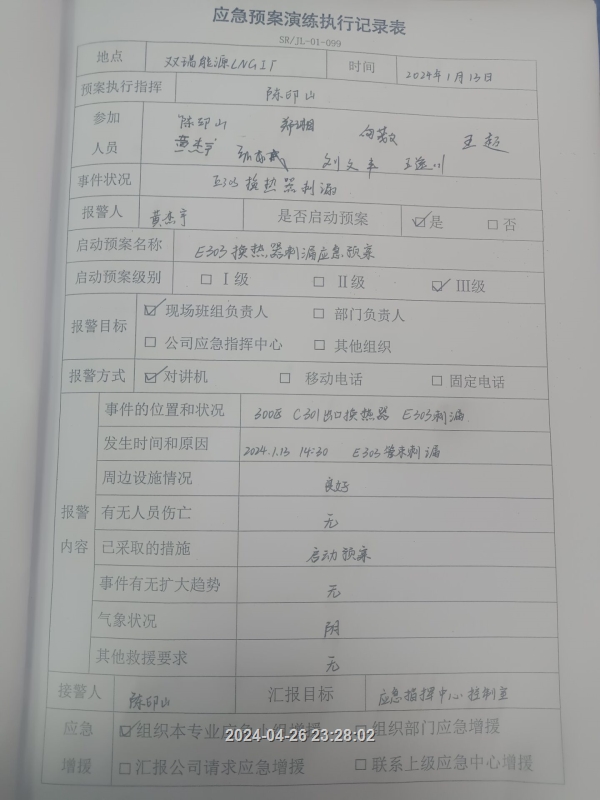 应急预案演练执行记录表
SR/JL-01-099
地点 双瑞能源LNGIT 时间 2024年1月13日
预案执行指挥 陈印山
参加 陈印山 王超
人员 黄杰宇 刘文丰
事件状况 E303换热器刺漏
报警人 黄杰宇 是否启动预案 ☑是 □否
启动预案名称 E303换热器刺漏应急预案
启动预案级别 □Ⅰ级 □Ⅱ级 ☑Ⅲ级
报警目标 ☑现场班组负责人 □部门负责人
□公司应急指挥中心 □其他组织
报警方式 ☑对讲机 □移动电话 □固定电话
报警内容
事件的位置和状况 300区 C301出口换热器 E303刺漏
发生时间和原因 2024.1.13 14:30 E303管束刺漏
周边设施情况 良好
有无人员伤亡 无
已采取的措施 启动预案
事件有无扩大趋势 无
气象状况 阴
其他救援要求 无
接警人 陈印山 汇报目标 应急指挥中心控制室
应急 ☑组织本专业应急小组增援 □组织部门应急增援
增援 □汇报公司请求应急增援 □联系上级应急中心增援
2024-04-26 23:28:02